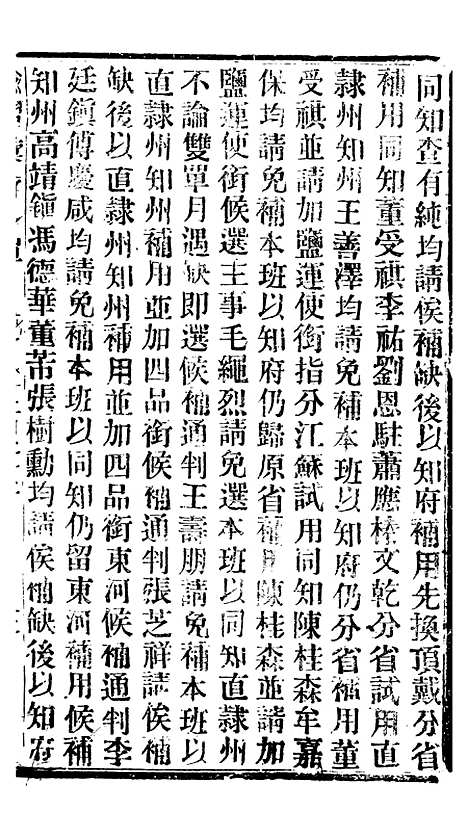 同知查有純均請候補缺後以知府補用先換頂戴分省
補用同知董受祺李祐劉恩駐蕭應椿文乾分省試用直
隸州知州王善澤均請免補本班以知府仍分省補用董
受祺並請加鹽運使銜指分江蘇試用同知陳桂森牟嘉
保均請免補本班以知府仍歸原省補用陳桂森並請加
鹽運使銜候選主事毛繩烈請免選本班以同知直隸州
不論雙單月遇缺即選候補通判王壽朋請免補本班以
直隸州知州補用並加四品銜候補通判張芝祥請俟補
缺後以直隸州知州補用並加四品銜東河候補通判李
廷鎮傅慶咸均請免補本班以同知仍留東河補用候補
知州高靖鎮馮德華董芾張樹勳均請俟補缺後以知府